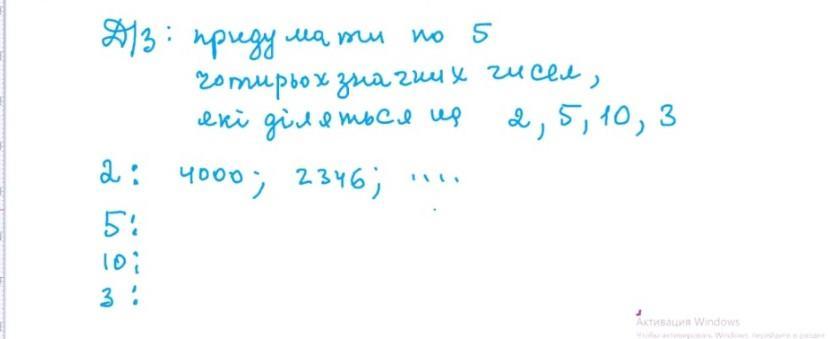 Д/З: придумати по 5
чотирьохзначних чисел,
які діляться на 2, 5, 10, 3
2: 4000; 2346; ....
5:
10:
3:
Активация Windows
Чтобы активировать Windows, перейдите в раздел